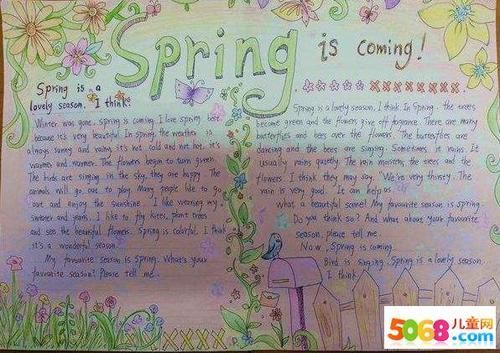 Spring is coming!
Spring is a
lovely season. I think
Winter was gone. spring is coming. I love spring best
because it's very beautiful. In spring, the weather is
always sunny and rainy, it's not cold and not hot. it's
warmer and warmer. The flowers begin to turn green.
The birds are singing in the sky, they are happy. The
animals will go out to play. Many people like to go
out and enjoy the sunshine. I like wearing my
sweater and jeans. I like to fly kites, plant trees
and see the beautiful flowers. Spring is colorful. I think
it's a wonderful season.
My favourite season is Spring. What's your
favourite season? Please tell me...
Spring is a lovely season, I think. In Spring, the trees
become green and the flowers give off fragrance. There are many
butterflies and bees over the flowers. The butterflies are
dancing and the bees are singing. Sometimes it rains. It
usually rains quietly. The rain moistens the trees and the
flowers. I think they may say. "We're very thirsty. The
rain is very good. It can help us.
what a beautiful scene! My favourite season is spring.
Do you think so? And what about your favourite
season, please tell me.
Now, Spring is coming.
Bird is singing. Spring is a lovely season.
I think.
5068儿童网